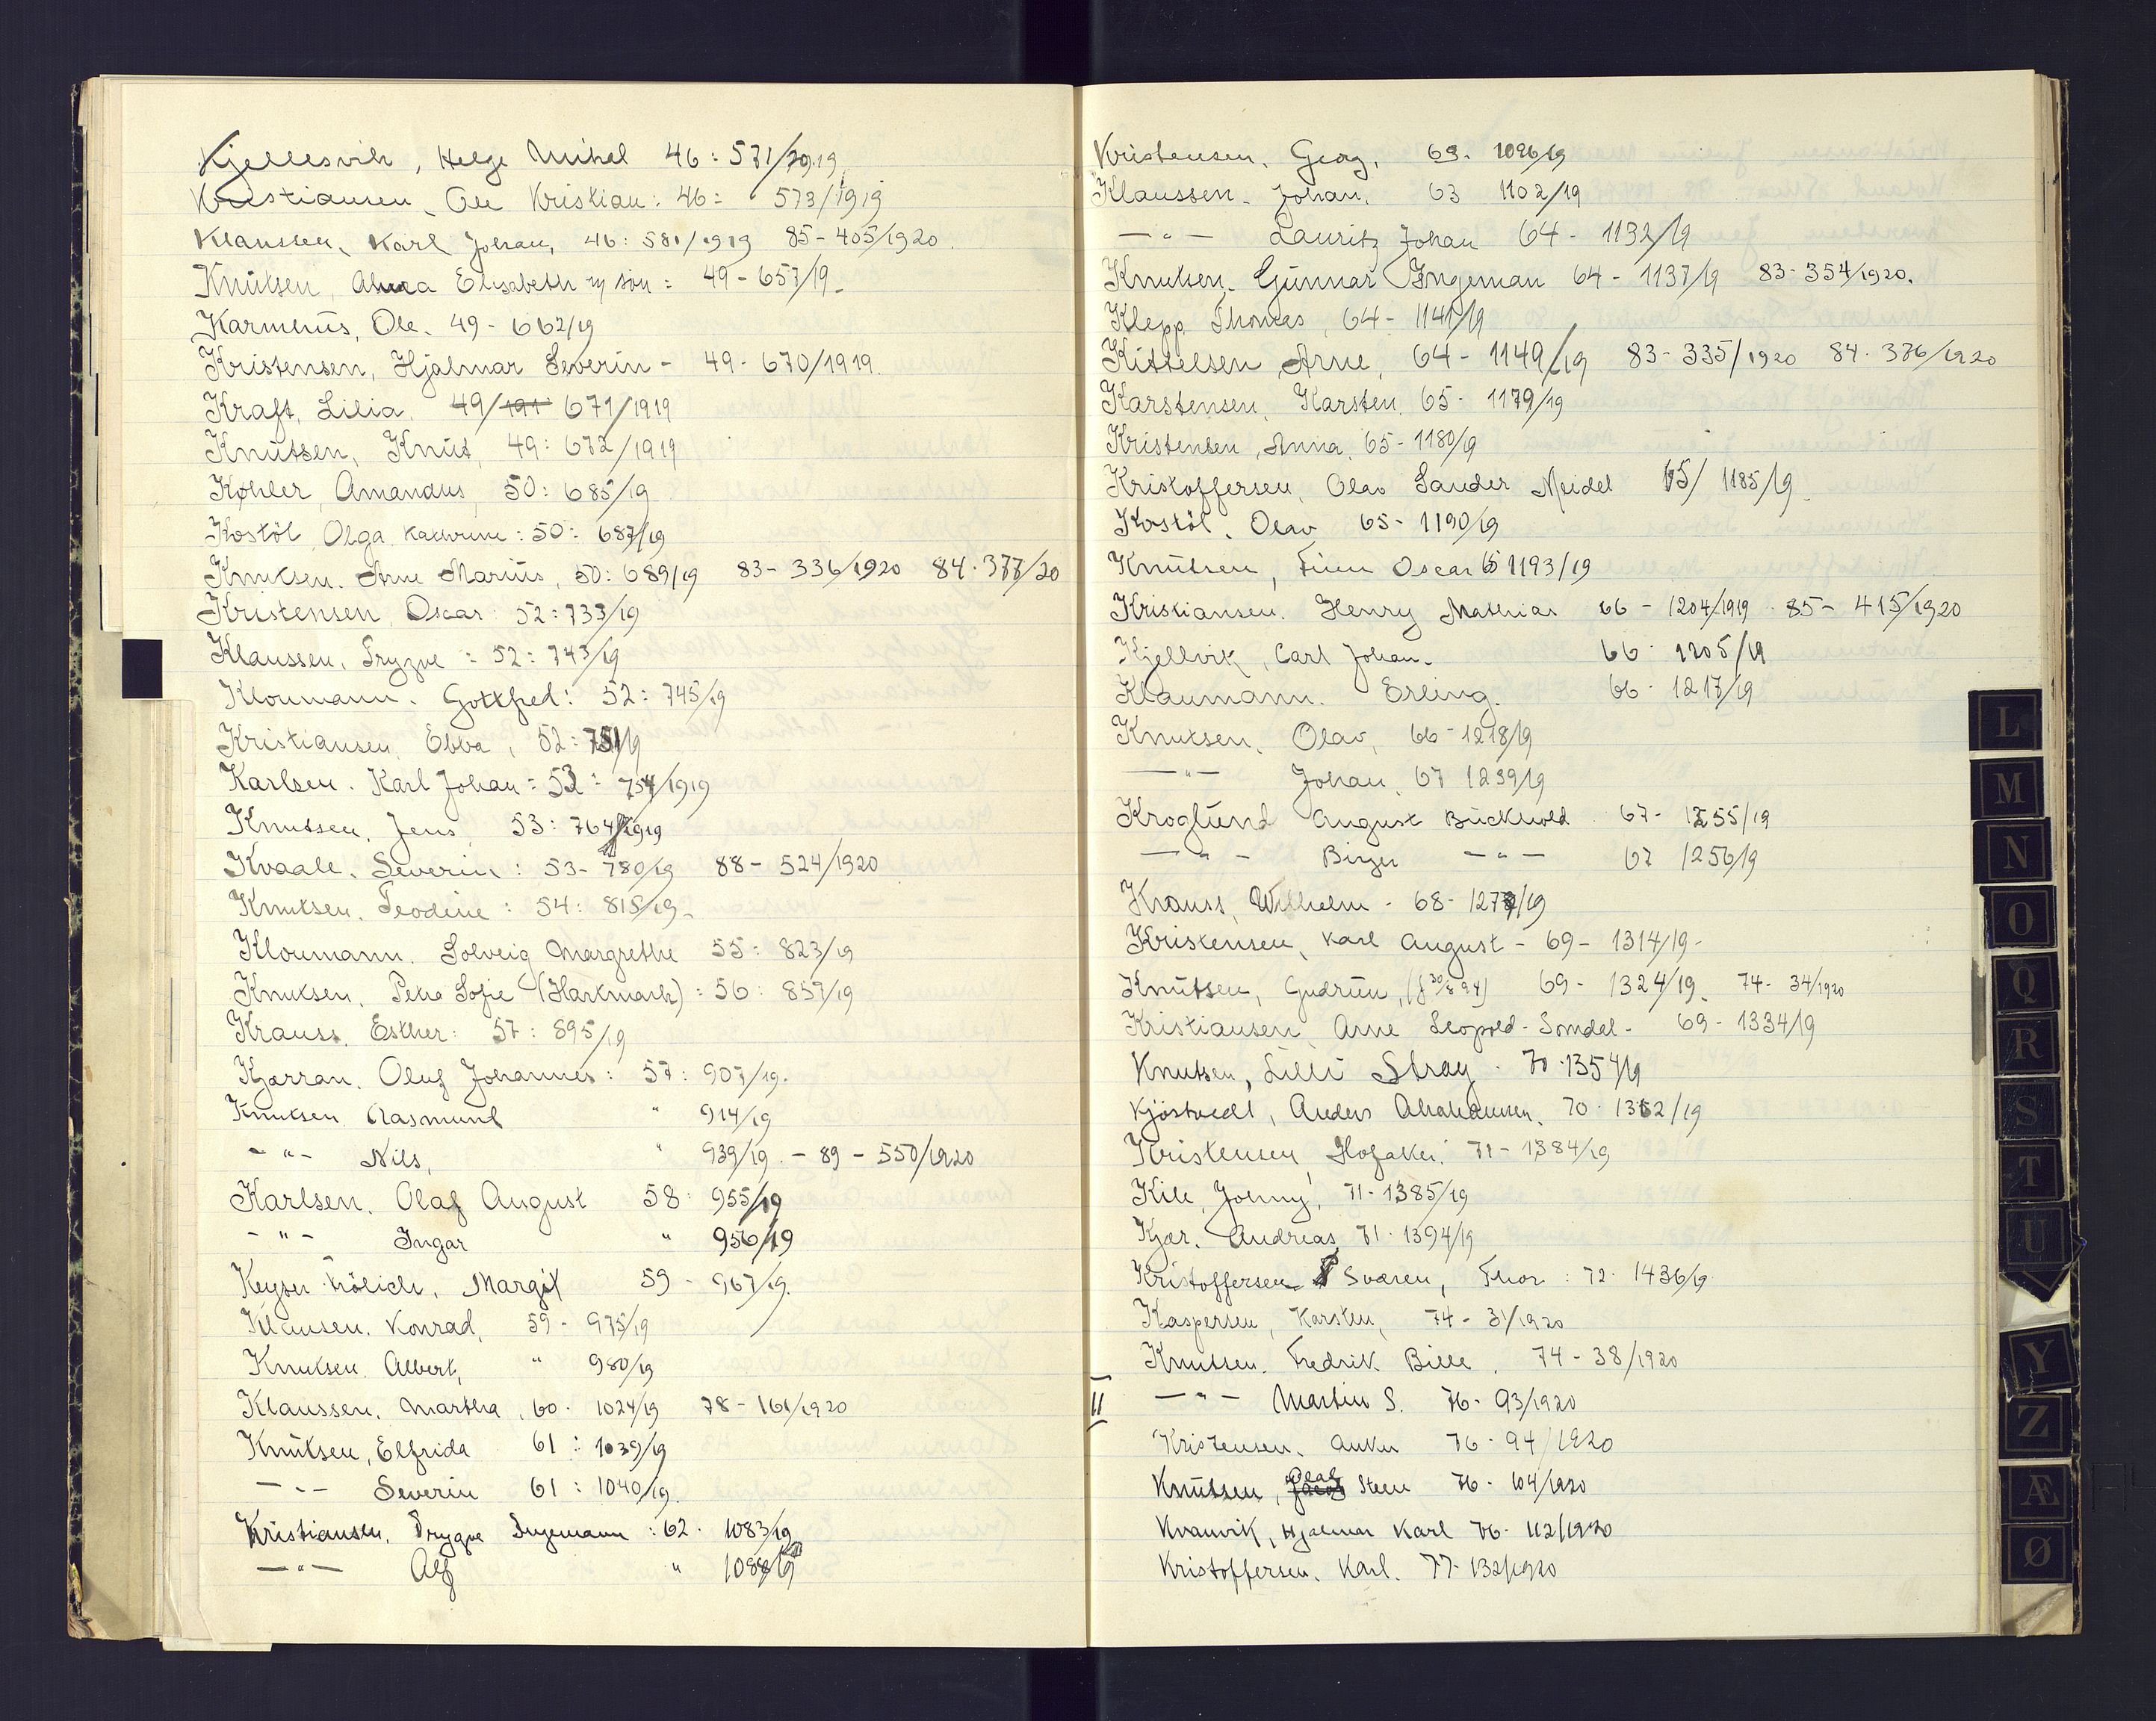 Kjellesvik, Helge Mikal 46: 571/1919
Kristiansen, Ole Kristian: 46: 573/1919
Klaussen, Karl Johan, 46: 581/1919 85-405/1920.
Knutsen, Elisabeth m/ søn: 49-657/19
Karmhus, Ole. 49-662/19
Kristensen, Hjalmar Severin - 49-670/1919.
Kraft, Lilia. 49/ 671/1919
Knutsen, Knut, 49: 672/1919
Køhler, Amandus, 50: 685/19
Kostøl, Olga Kathrine: 50: 687/19
Knutsen. Arne Marius, 50: 689/19 83-336/1920 84-377/20
Kristensen, Oscar 52: 733/19
Klaussen, Trygve: 52: 743/19
Kloumann. Gottfred: 52: 745/19
Kristiansen, Ebba, 52: 751/19
Karlsen. Karl Johan: 53: 754/1919
Knutsen, Jens, 53: 764/1919
Kvaale, Severin: 53-780/19 88-524/1920
Knutsen, Teodine: 54: 815/19
Kloumann. Solveig Margrethe 55: 823/19
Knutsen, Petra Sofie (Harkmark): 56: 859/19
Krauss, Esther: 57: 895/19
Kjørran, Oluf Johannes: 57: 907/19.
Knutsen Rasmund " 914/19
- " - Nils, " 939/19. - 89-550/1920
Karlsen, Olaf August 58: 955/19
- " - Ingar " 956/19
Keyser Frölich, Margit 59-967/19.
Klausen, Konrad, 59-975/19
Knutsen, Albert, " 980/19
Klaussen, Martha, 60. 1024/19 78-161/1920
Knutsen, Elfrida 61: 1039/19
- " - Severin 61: 1040/19.
Kristiansen, Trygve Ingemann: 62. 1083/19
- " - Alf " 1084/19
Kristensen, Georg, 63. 1096/19
Klaussen, Johan, 63 1102/19
- " - Lauritz Johan 64-1132/19
Knutsen, Gunnar Ingeman 64-1137/19 83-354/1920.
Klepp, Thomas, 64-1141/19
Kittelsen, Arne, 64-1149/19 83-335/1920 84-376/1920
Karstensen, Karsten, 65-1179/19
Kristensen, Anna, 65-1180/19
Kristoffersen, Olav Sander Meidel 65/1185/19.
Kostøl, Olav 65-1190/19
Knutsen, Finn Oscar 65 1193/19
Kristiansen, Henry Mathias 66-1204/1919. 85-415/1920
Kjellvik, Carl Johan. 66-1205/19
Klaumann. Erling. 66-1217/19
Knutsen, Olav, 66-1218/19
- " - Johan, 67 1239/19
Kroglund August Buckhold 67-1255/19
- " - Birger - " - 67 1256/19
Krauss, Wilhelm - 68-1277/19
Kristensen, Karl August - 69-1314/19-
Knutsen, Gudrun, (f 30/8 94) 69-1324/19. 74-34/1920
Kristiansen, Arne Leopold Somdal - 69-1334/19
Knutsen, Lilli Stray. 70-1354/19
Kjøstvedt, Anders Abrahamsen. 70-1362/19
Kristensen, 71-1384/19
Kile, Johnny, 71-1385/19
Kjær, Andreas, 71-1394/19
Kristoffersen Svaren, Thor: 72-1436/19
Kaspersen, Karsten, 74-31/1920
Knutsen, Fredrik Bille. 74-38/1920
II - " - Martin S. 76-93/1920
Kristensen, 76-94/1920
Knutsen, Olaf Steen 76-104/1920
Kvanvik, Hjalmar Karl 76-112/1920
Kristoffersen, Karl. 77-132/1920
L
M
N
O
Q
R
S
T
U
Y
Z
Æ
Ø